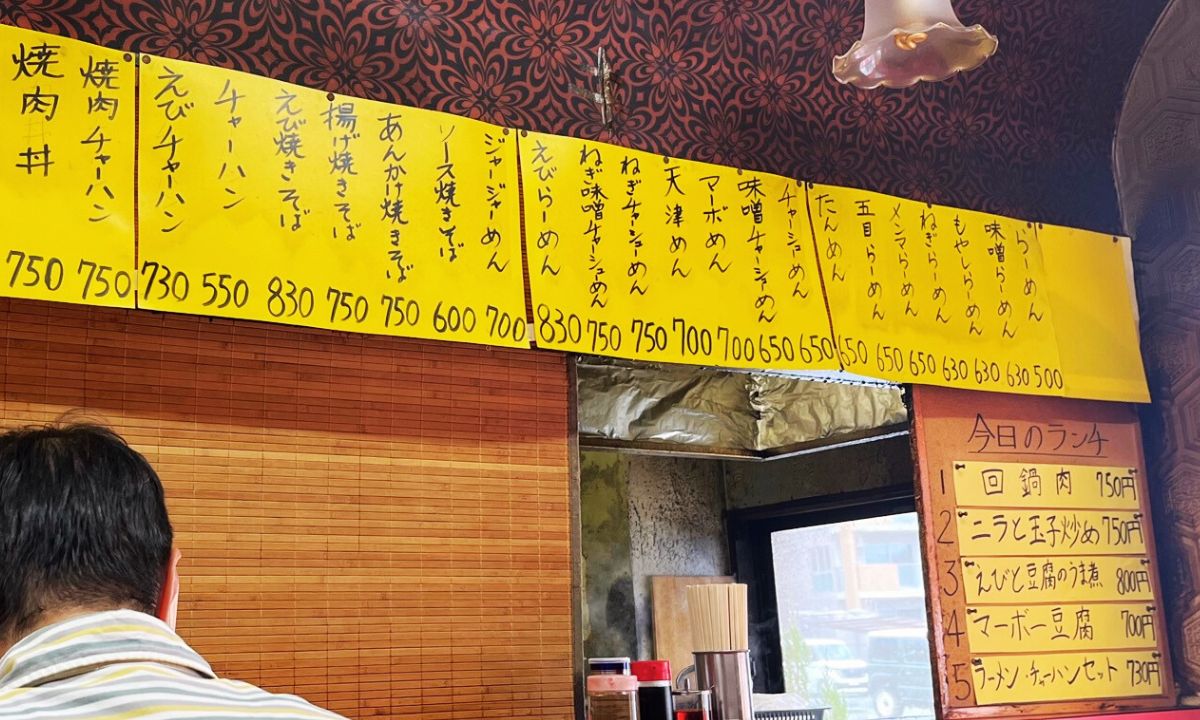 らーめん 500
味噌らーめん 630
もやしらーめん 630
ねぎらーめん 630
メンマらーめん 650
五目らーめん 650
たんめん 650
チャシューめん 650
味噌チャーシューめん 650
マーボめん 700
天津めん 700
ねぎチャーシューめん 750
ねぎ味噌チャーシューめん 750
えびらーめん 830
ジャージャーめん 700
ソース焼きそば 600
あんかけ焼きそば 750
揚げ焼きそば 750
えび焼きそば 830
チャーハン 550
えびチャーハン 730
焼肉チャーハン 750
焼肉丼 750
今日のランチ
1 回鍋肉 750円
2 ニラと玉子炒め 750円
3 えびと豆腐のうま煮 800円
4 マーボー豆腐 700円
5 ラーメン・チャーハンセット 730円